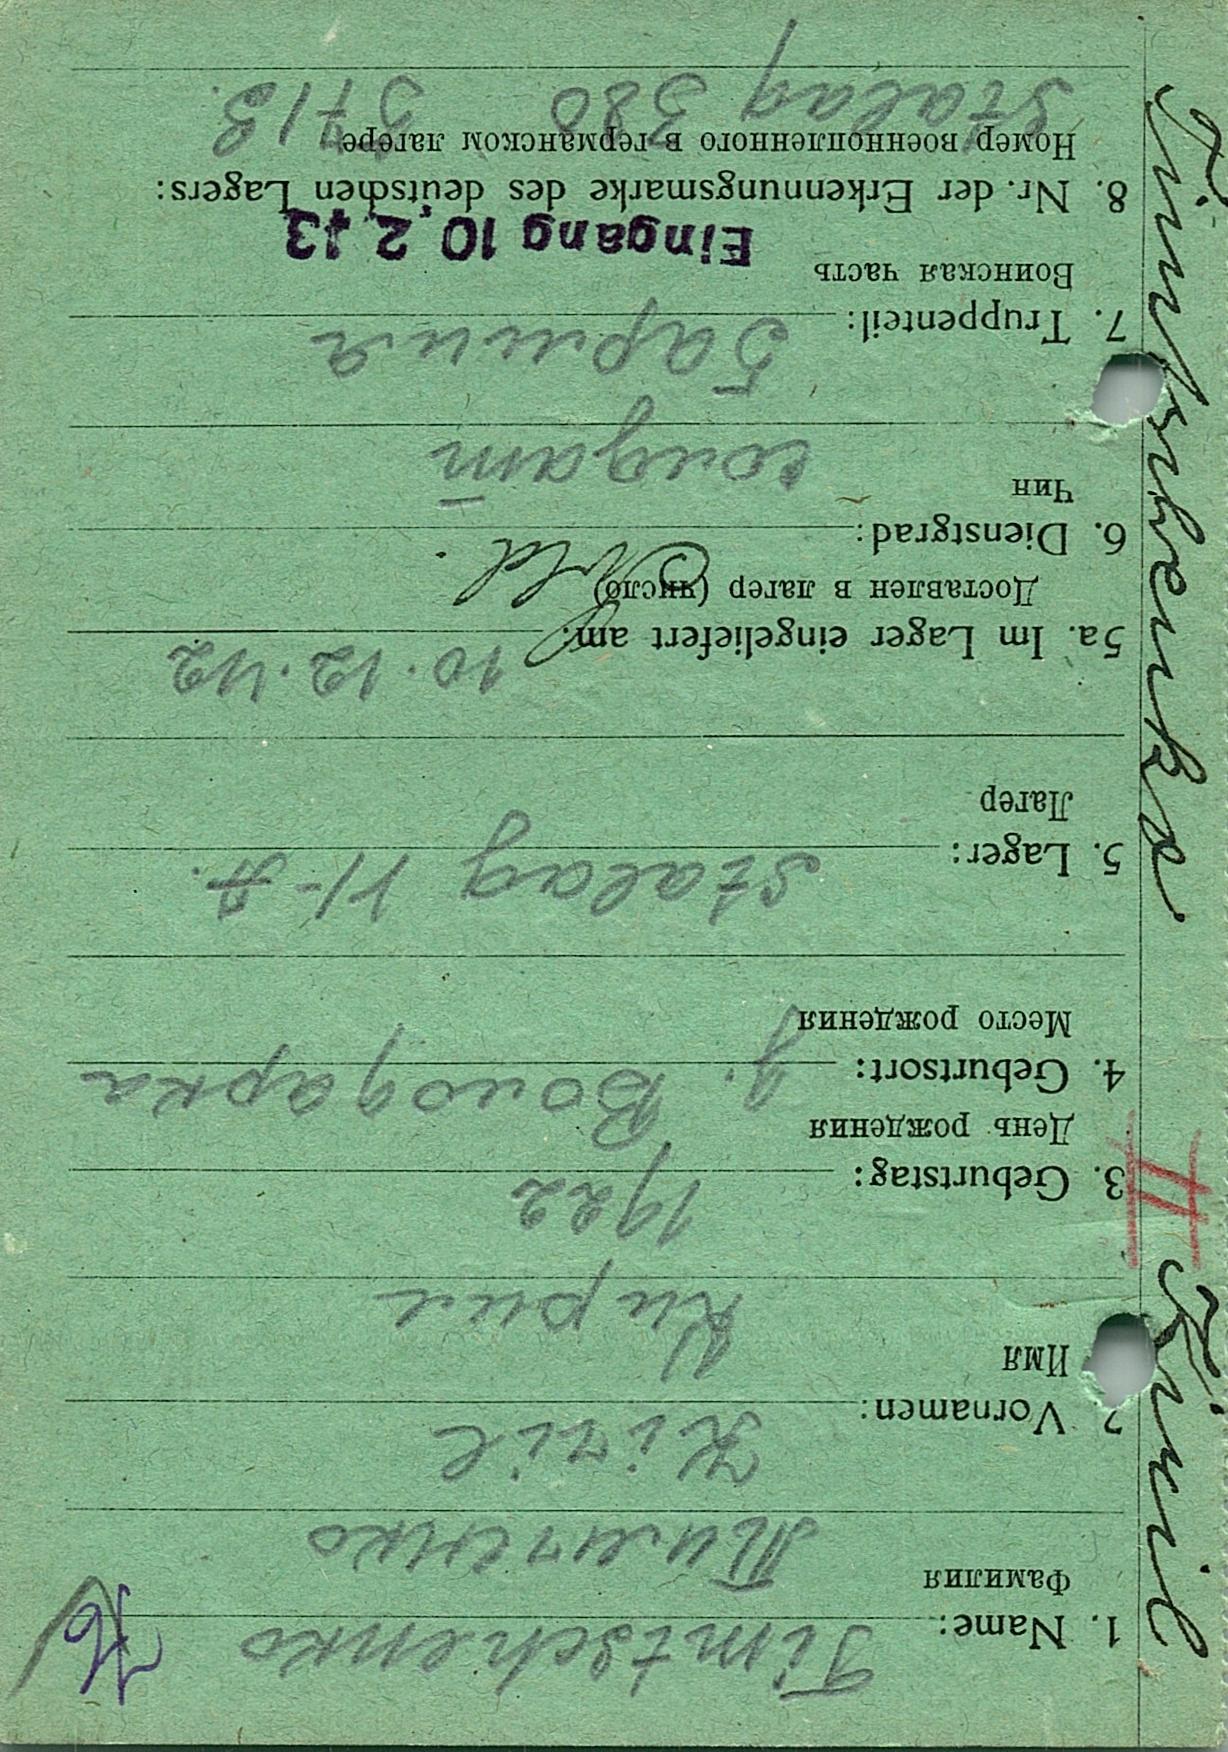 1. Name: Timtschenko
Фамилия Тимченко
2. Vornamen: Kiril
Имя Кирил
3. Geburtstag: 1922
День рождения
4. Geburtsort: д. Володарка
Место рождения
5. Lager: Stalag 11-A.
Лагер
5a. Im Lager eingeliefert am: 10.12.42
Доставлен в лагер (число)
6. Dienstgrad: Sold.
Чин солдат
7. Truppenteil:
Воинская часть
Eingang 10. 2. 43
8. Nr. der Erkennungsmarke des deutschen Lagers:
Номер военнопленного в германском лагере
Stalag 380
Timtschenko Kiril